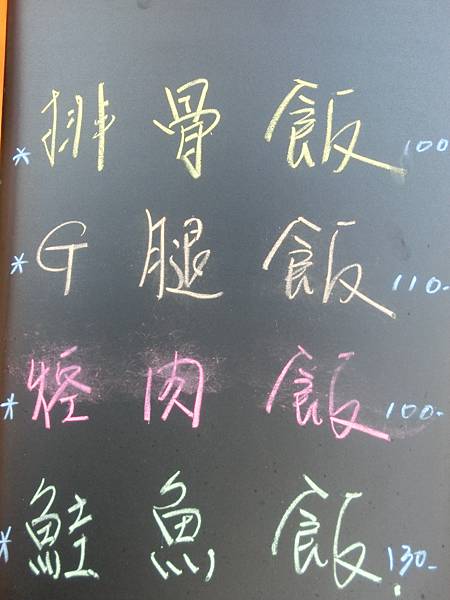 * 排骨飯 100
* G腿飯 110-
* 焢肉飯 100-
* 鮭魚飯 130-